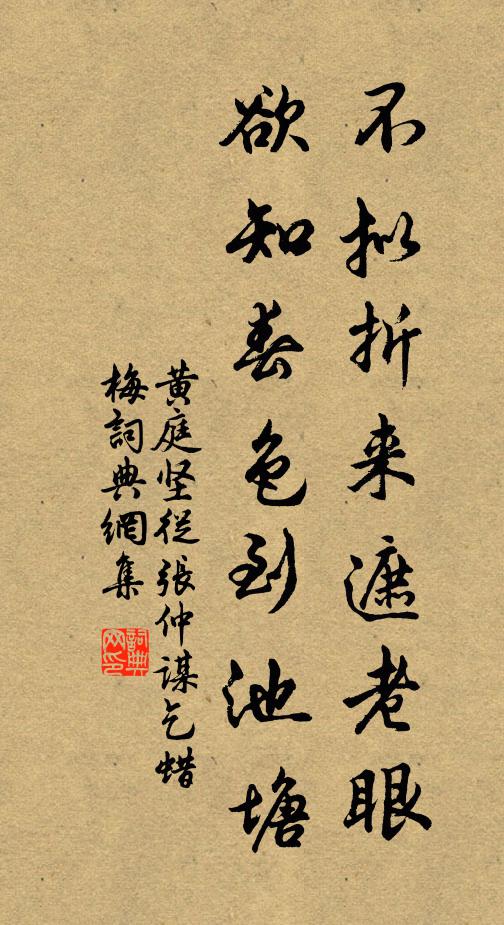 不拟折来遮老眼
欲知春色到池塘
黄庭坚從張仲謀乞蜡
梅詞典網集
詞典网印